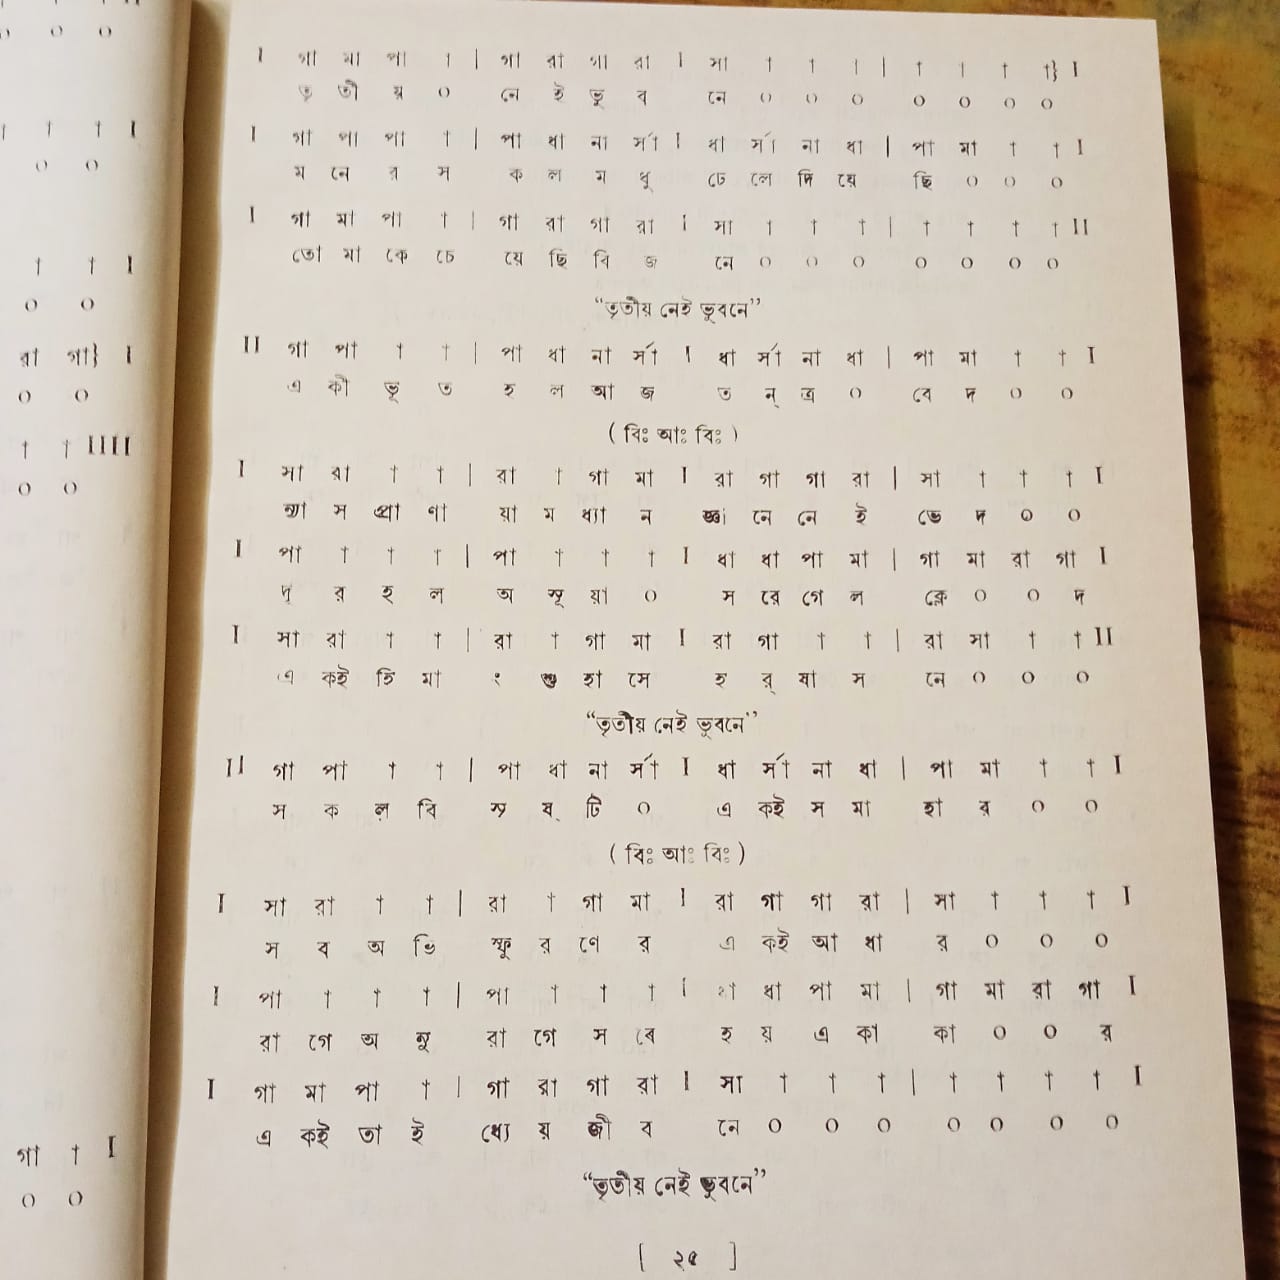 I গা মা পা † | গা রা গা রা I সা † † † | † † † †} I
তৃ তী য় ০ নে ই ভু ব নে ০ ০ ০ ০ ০ ০ ০
I গা পা পা † | পা ধা না র্সা I ধা র্সা না ধা | পা মা † † I
ম নে র স ক ল ম ধু ঢে লে দি য়ে ছি ০ ০ ০
I গা মা পা † | গা রা গা রা I সা † † † | † † † † II
তো মা কে চে য়ে ছি বি জ নে ০ ০ ০ ০ ০ ০ ০
“তৃতীয় নেই ভুবনে”
II গা পা † † | পা ধা না র্সা I ধা র্সা না ধা | পা মা † † I
এ কী ভূ ত হ ল আ জ ত ন্ ত্র ০ বে দ ০ ০
( বিঃ আঃ বিঃ )
I সা রা † † | রা † গা মা I রা গা গা রা | সা † † † I
ন্যা স প্রা ণা য়া ম ধ্যা ন জ্ঞা নে নে ই ভে দ ০ ০
I পা † † † | পা † † † I ধা ধা পা মা | গা মা রা গা I
দূ র হ ল অ সূ য়া ০ স রে গে ল ক্লে ০ ০ দ
I সা রা † † | রা † গা মা I রা গা † † | রা সা † † II
এ কই হি মা ং শু হা সে হ র্ ষা স নে ০ ০ ০
“তৃতীয় নেই ভুবনে”
II গা পা † † | পা ধা না র্সা I ধা র্সা না ধা | পা মা † † I
স ক ল বি সৃ ষ্ টি ০ এ কই স মা হা র ০ ০
( বিঃ আঃ বিঃ )
I সা রা † † | রা † গা মা I রা গা গা রা | সা † † † I
স ব অ ভি স্ফূ র ণে র এ কই আ ধা র ০ ০ ০
I পা † † † | পা † † † I ধা ধা পা মা | গা মা রা গা I
রা গে অ নু রা গে স বে হ য় এ কা কা ০ ০ র
I গা মা পা † | গা রা গা রা I সা † † † | † † † † I
এ কই তা ই ধ্যে য় জী ব নে ০ ০ ০ ০ ০ ০ ০
“তৃতীয় নেই ভুবনে”
[ ২৫ ]